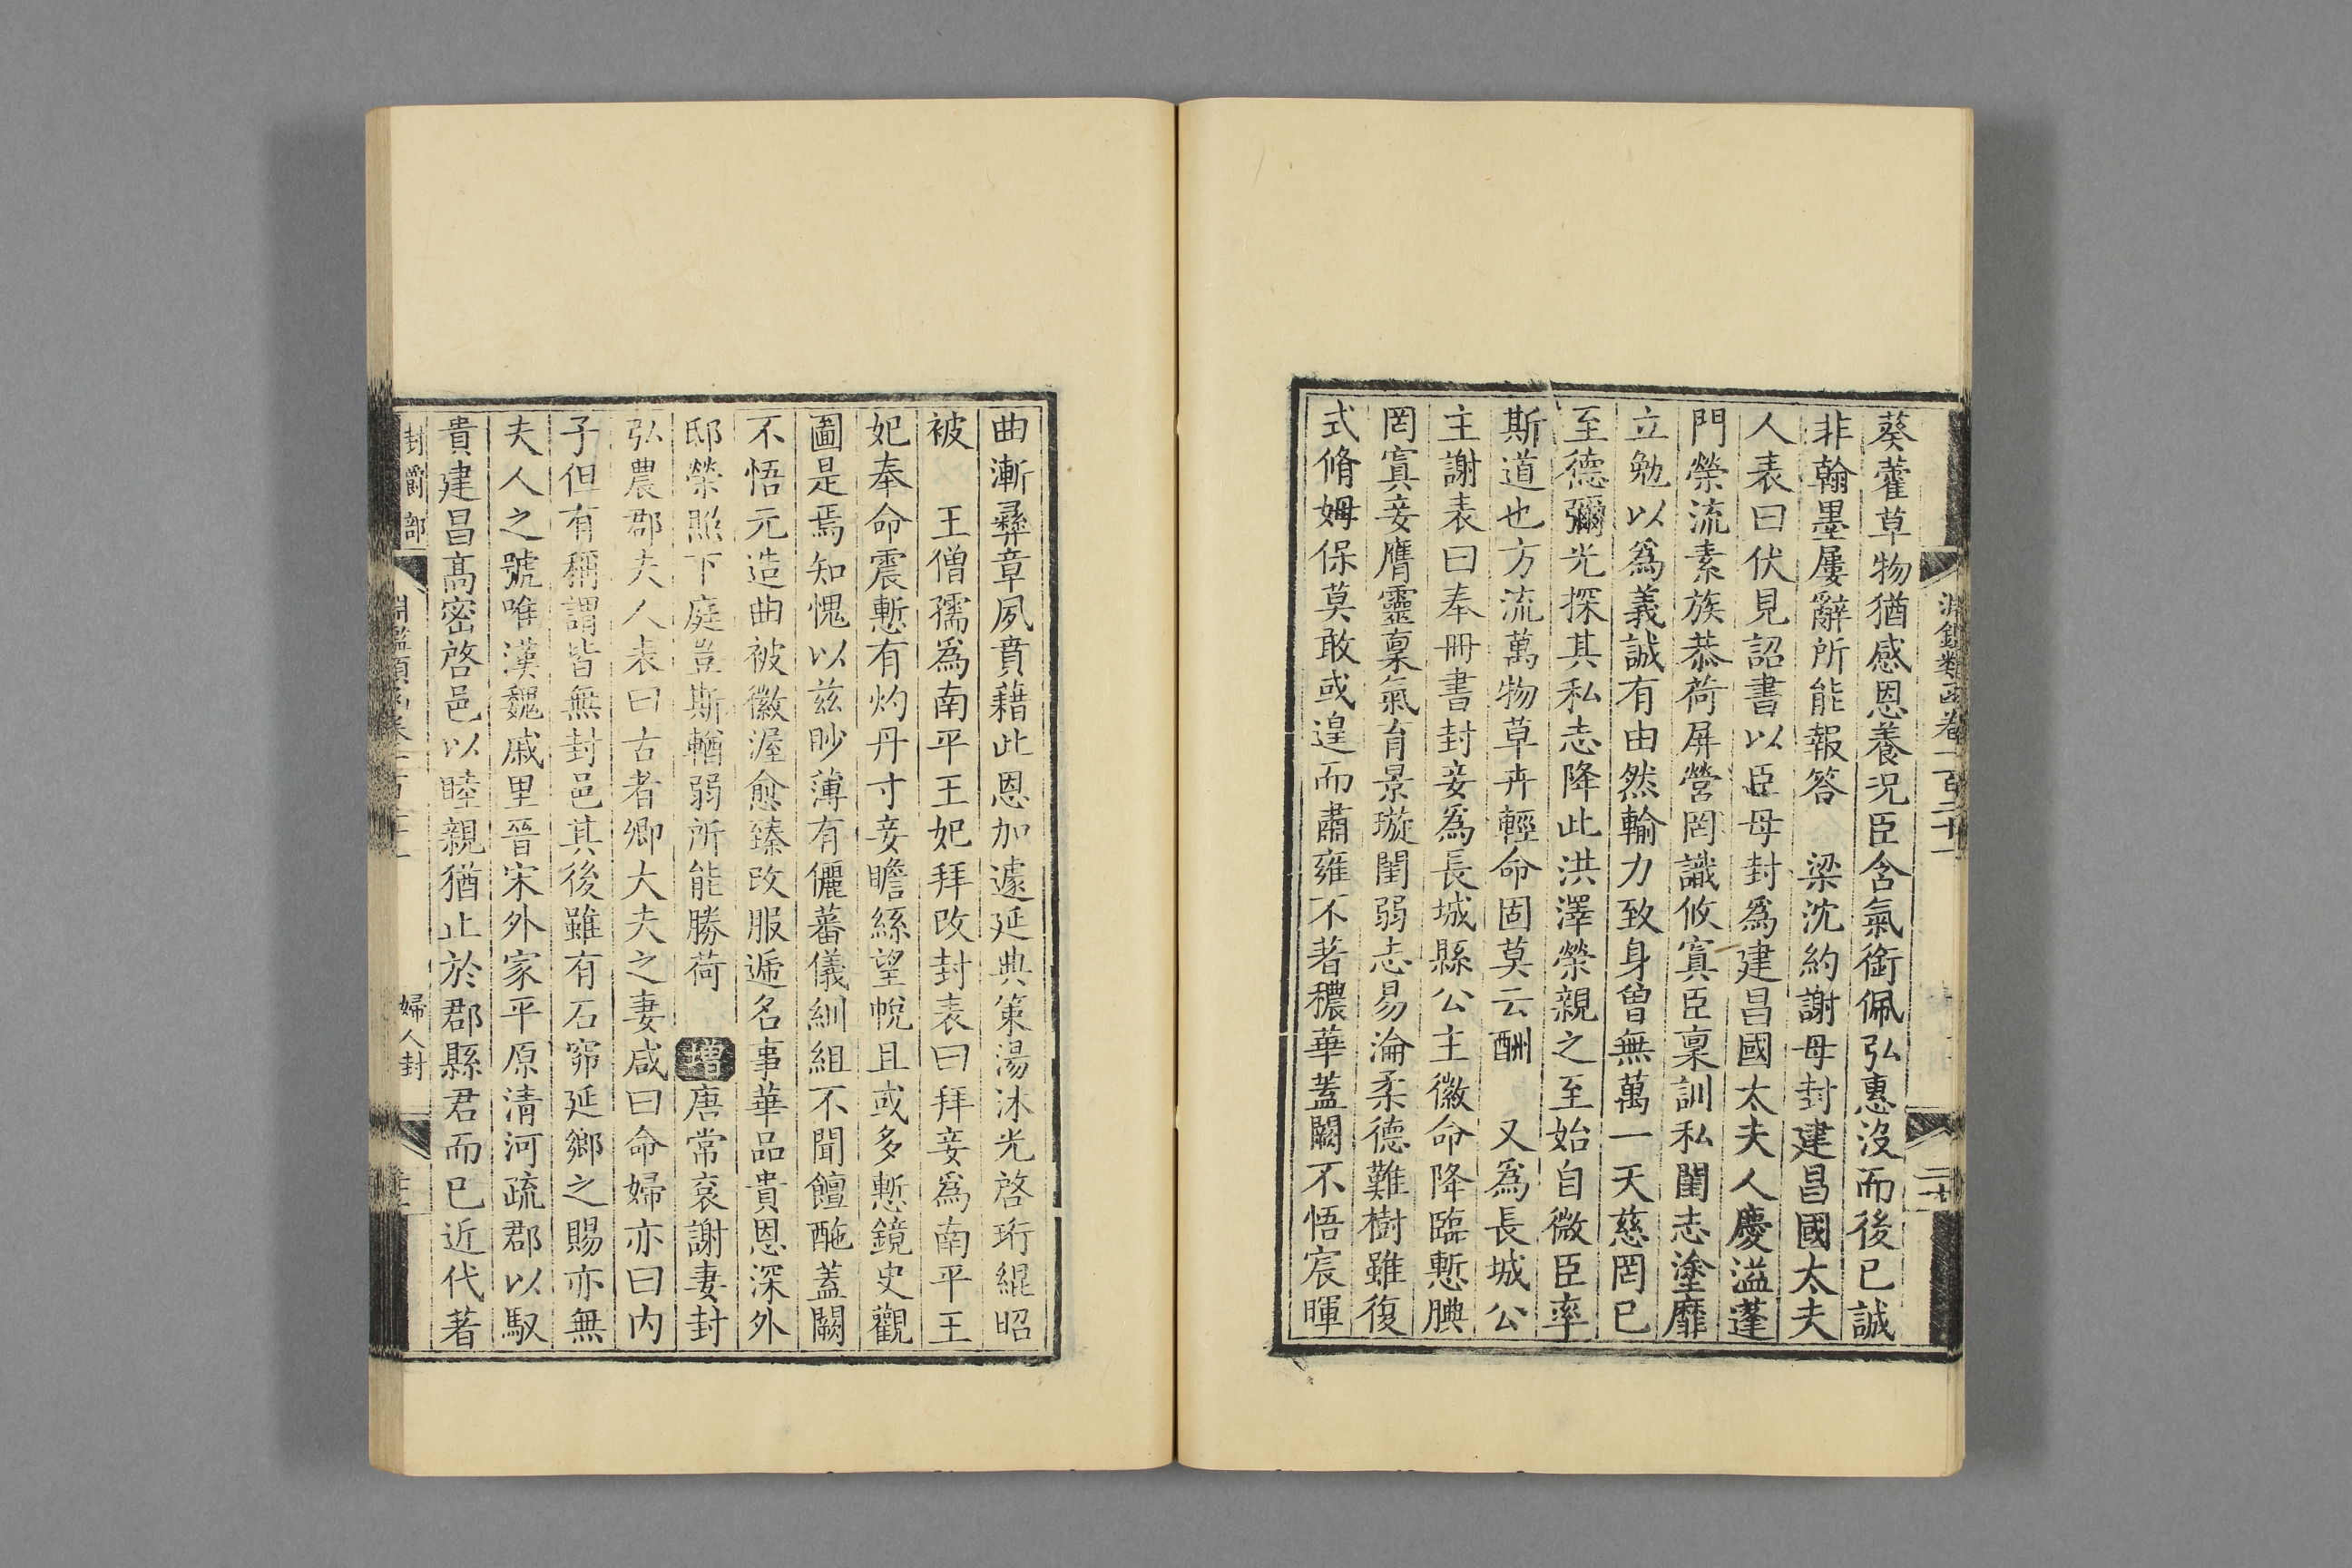 淵鑑類函卷一百二十一
二十
葵藿草物猶感恩養况臣含氣銜佩弘惠沒而後已誠
非翰墨屢辭所能報答　梁沈約謝母封建昌國太夫
人表曰伏見詔書以臣母封爲建昌國太夫人慶溢蓬
門榮流素族恭荷屏營罔識攸寘臣稟訓私閨志塗靡
立勉以爲義誠有由然輸力致身曾無萬一天慈罔已
至德彌光探其私志降此洪澤榮親之至始自微臣率
斯道也方流萬物草卉輕命固莫云酬　又爲長城公
主謝表曰奉冊書封妾爲長城縣公主徽命降臨慙腆
罔寘妾膺靈稟氣育景璇閨弱志易淪柔德難樹雖復
式脩姆保莫敢或遑而肅雍不著穠華蓋闕不悟宸暉
曲漸彝章夙賁藉此恩加遽延典策湯沐光啓珩緄昭
被　王僧孺爲南平王妃拜改封表曰拜妾爲南平王
妃奉命震慙有灼丹寸妾瞻絲望帨且或多慙鏡史觀
圖是焉知愧以兹眇薄有儷蕃儀紃組不聞饘酏蓋闕
不悟元造曲被徽渥愈臻改服遞名事華品貴恩深外
邸榮照下庭豈斯輶弱所能勝荷　增唐常衮謝妻封
弘農郡夫人表曰古者卿大夫之妻咸曰命婦亦曰内
子但有稱謂皆無封邑其後雖有石窌延鄉之賜亦無
夫人之號唯漢魏戚里晉宋外家平原清河疏郡以馭
貴建昌高密啓邑以睦親猶止於郡縣君而已近代著
封爵部
婦人封